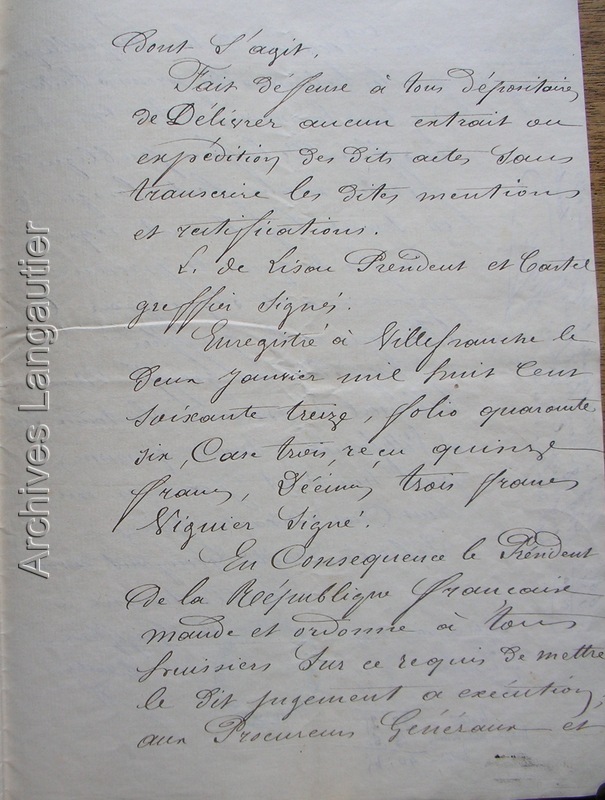 Dont s'agit.
Fait déffense à tous dépositaires
de Délivrer aucun extrait ou
expédition des dits actes sans
transcrire les dites mentions
et ratifications.
L. de Lison Président et Castel
greffier signés.
Enregistré à Villefranche le
deux janvier mil huit cent
soixante treize, folio quarante
six, Case trois, reçu quinze
francs, Décimes trois francs
Viguier Signé.
En Consequence le Président
De la République française
mande et ordonne à tous
huissiers sur ce requis de mettre
le dit jugement a exécution,
aux Procureurs Généraux et
Archives Langautier